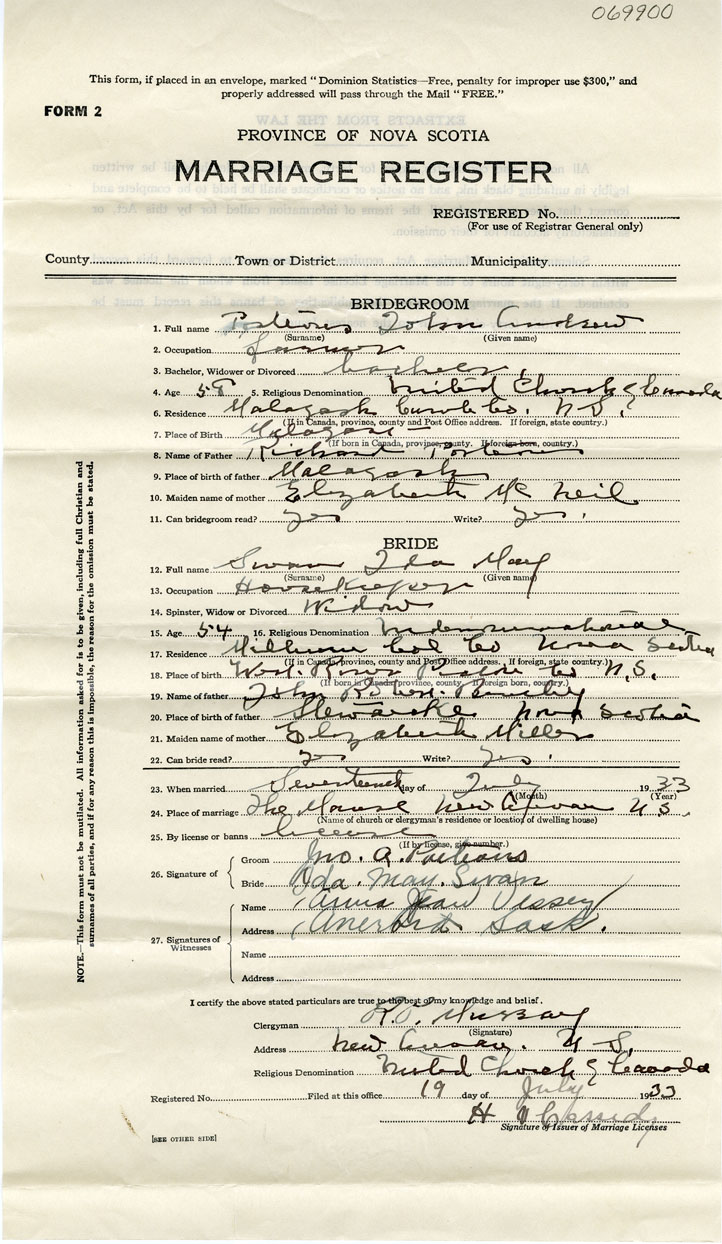 069900
This form, if placed in an envelope, marked "Dominion Statistics—Free, penalty for improper use $300," and
properly addressed will pass through the Mail "FREE."
FORM 2
PROVINCE OF NOVA SCOTIA
MARRIAGE REGISTER
REGISTERED No.
(For use of Registrar General only)
County Town or District Municipality
BRIDEGROOM
1. Full name Porteous John Andrew
(Surname) (Given name)
2. Occupation farmer
3. Bachelor, Widower or Divorced bachelor
4. Age 58 5. Religious Denomination United Church of Canada
6. Residence Malagash Cumb Co. N.S.
(If in Canada, province, county and Post Office address. If foreign, state country.)
7. Place of Birth Malagash
(If born in Canada, province, county. If foreign born, country.)
8. Name of Father Richard Porteous
9. Place of birth of father Malagash
10. Maiden name of mother Elizabeth McNeil
11. Can bridegroom read? yes Write? yes.
BRIDE
12. Full name Swan Ida May
(Surname) (Given name)
13. Occupation Housekeeper
14. Spinster, Widow or Divorced Widow
15. Age 54 16. Religious Denomination Undenominational
17. Residence Col Co Nova Scotia
(If in Canada, province, county and Post Office address. If foreign, state country.)
18. Place of Birth West River Co N.S.
(If born in Canada, province, county. If foreign born, country.)
19. Name of father John Robert
20. Place of birth of father Stewiacke Nova Scotia
21. Maiden name of mother Elizabeth Miller
22. Can bride read? yes Write? yes.
23. When married Seventeenth day of July 1933
(Month) (Year)
24. Place of marriage The Manse New Annan N S.
(Name of church or clergyman's residence or location of dwelling house)
25. By license or banns license
(If by license, give number.)
26. Signature of
Groom Jno. A. Porteous
Bride Ida. May. Swan
27. Signatures of Witnesses
Name Anna Jean Vissey
Address Sask.
Name
Address
I certify the above stated particulars are true to the best of my knowledge and belief.
Clergyman Murray
(Signature)
Address New Annan. N S.
Religious Denomination United Church of Canada
Registered No. Filed at this office 19 day of July 1933
H Cassidy
Signature of Issuer of Marriage Licenses
[SEE OTHER SIDE]
NOTE.—This form must not be mutilated. All information asked for is to be given, including full Christian and
surnames of all parties, and if for any reason this is impossible, the reason for the omission must be stated.